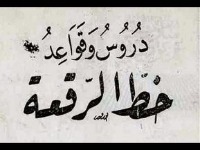 دُرُوسُ وَقَوَاعِدُ
خطّ الرّقعة